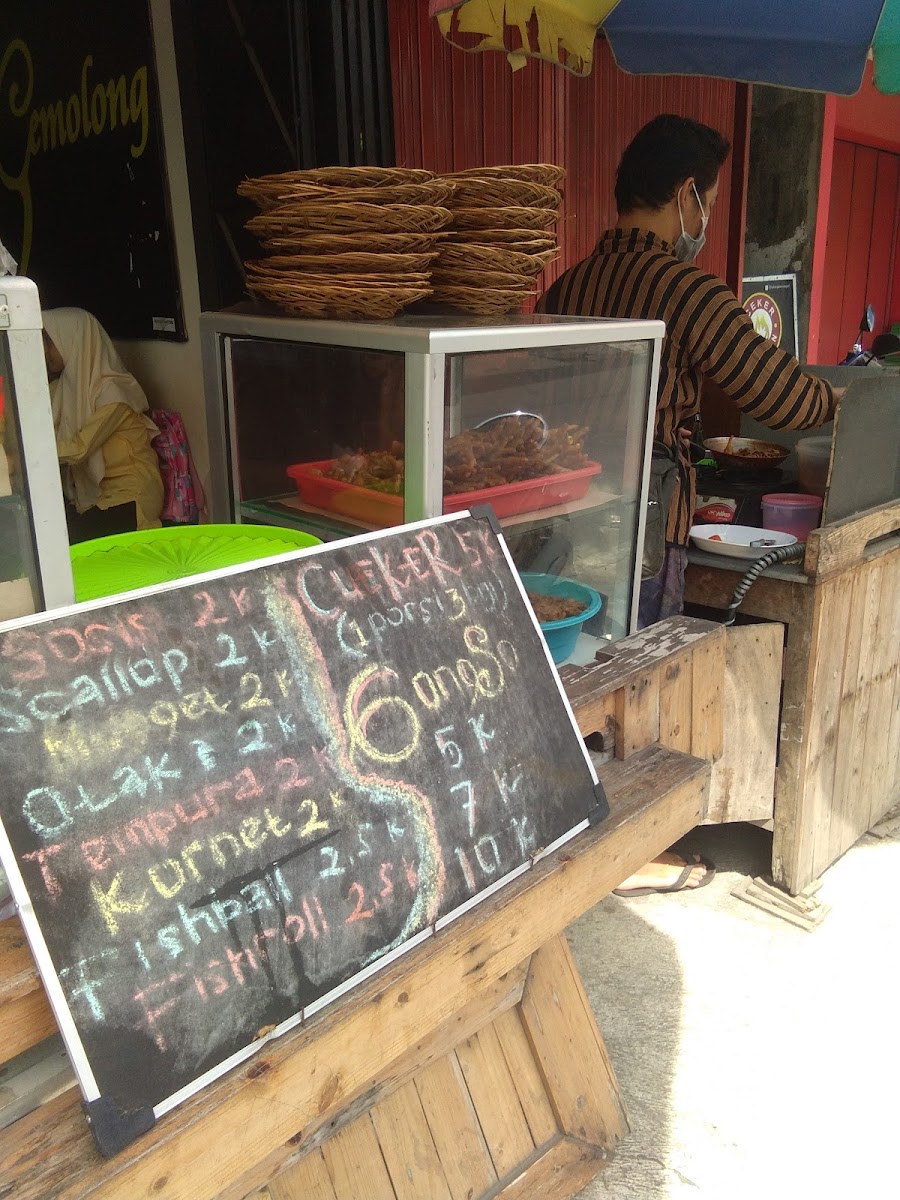 Gemolong
Sosis 2K
Scallop 2K
Nuget 2K
Otak² 2K
Tempura 2K
Kornet 2K
Fishball 2,5K
Fishroll 2,5K
CUEKER 5K
(1 porsi 3 biji)
GongSo
5K
7K
10K